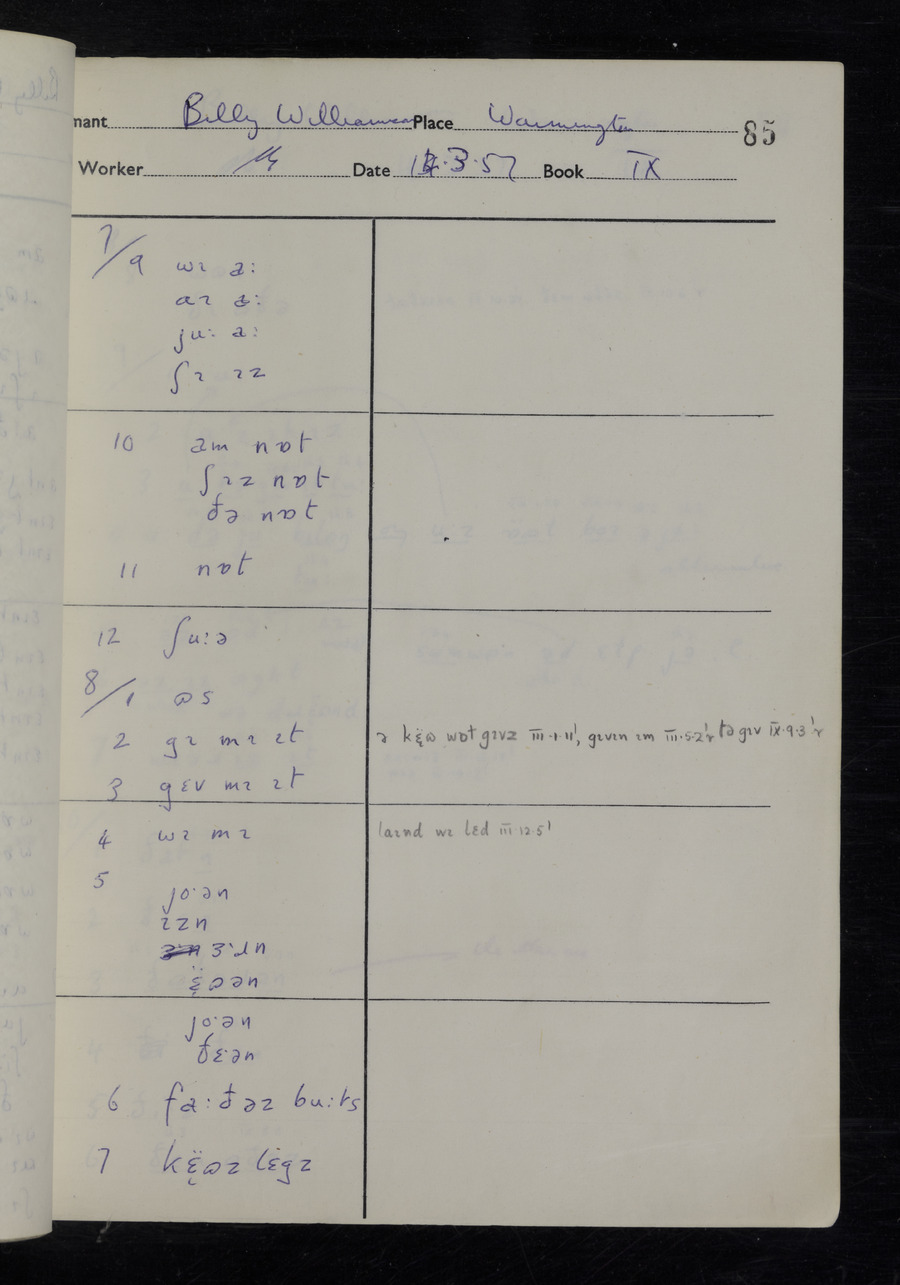 mant Billy Williamson Place Warmington 85
Worker Date 12.3.57 Book IX
7/9 wɪ a:
aɪ a:
ju: a:
ʃɪ ɪz
10 am nɒt
ʃɪz nɒt
ðə nɒt
11 nɒt
12 ʃu:ə
8/1 ɷs
2 gɪ mɪ ɪt ə kɛ̈ɷ wɒt gɪvz III.1.11', gɪvɪn ɪm III.5.2'r tə gɪv IX.9.3'r
3 gɛv mɪ ɪt
4 wɪ mɪ laɪnd wɪ lɛd III.12.5'
5
jo.ən
ɪzn
ɜ.ɹn
ɛ̈ɷən
jo.ən
ðɛ.ən
6 fa:ðəz bu:ts
7 kɛ̈ɷz lɛgz